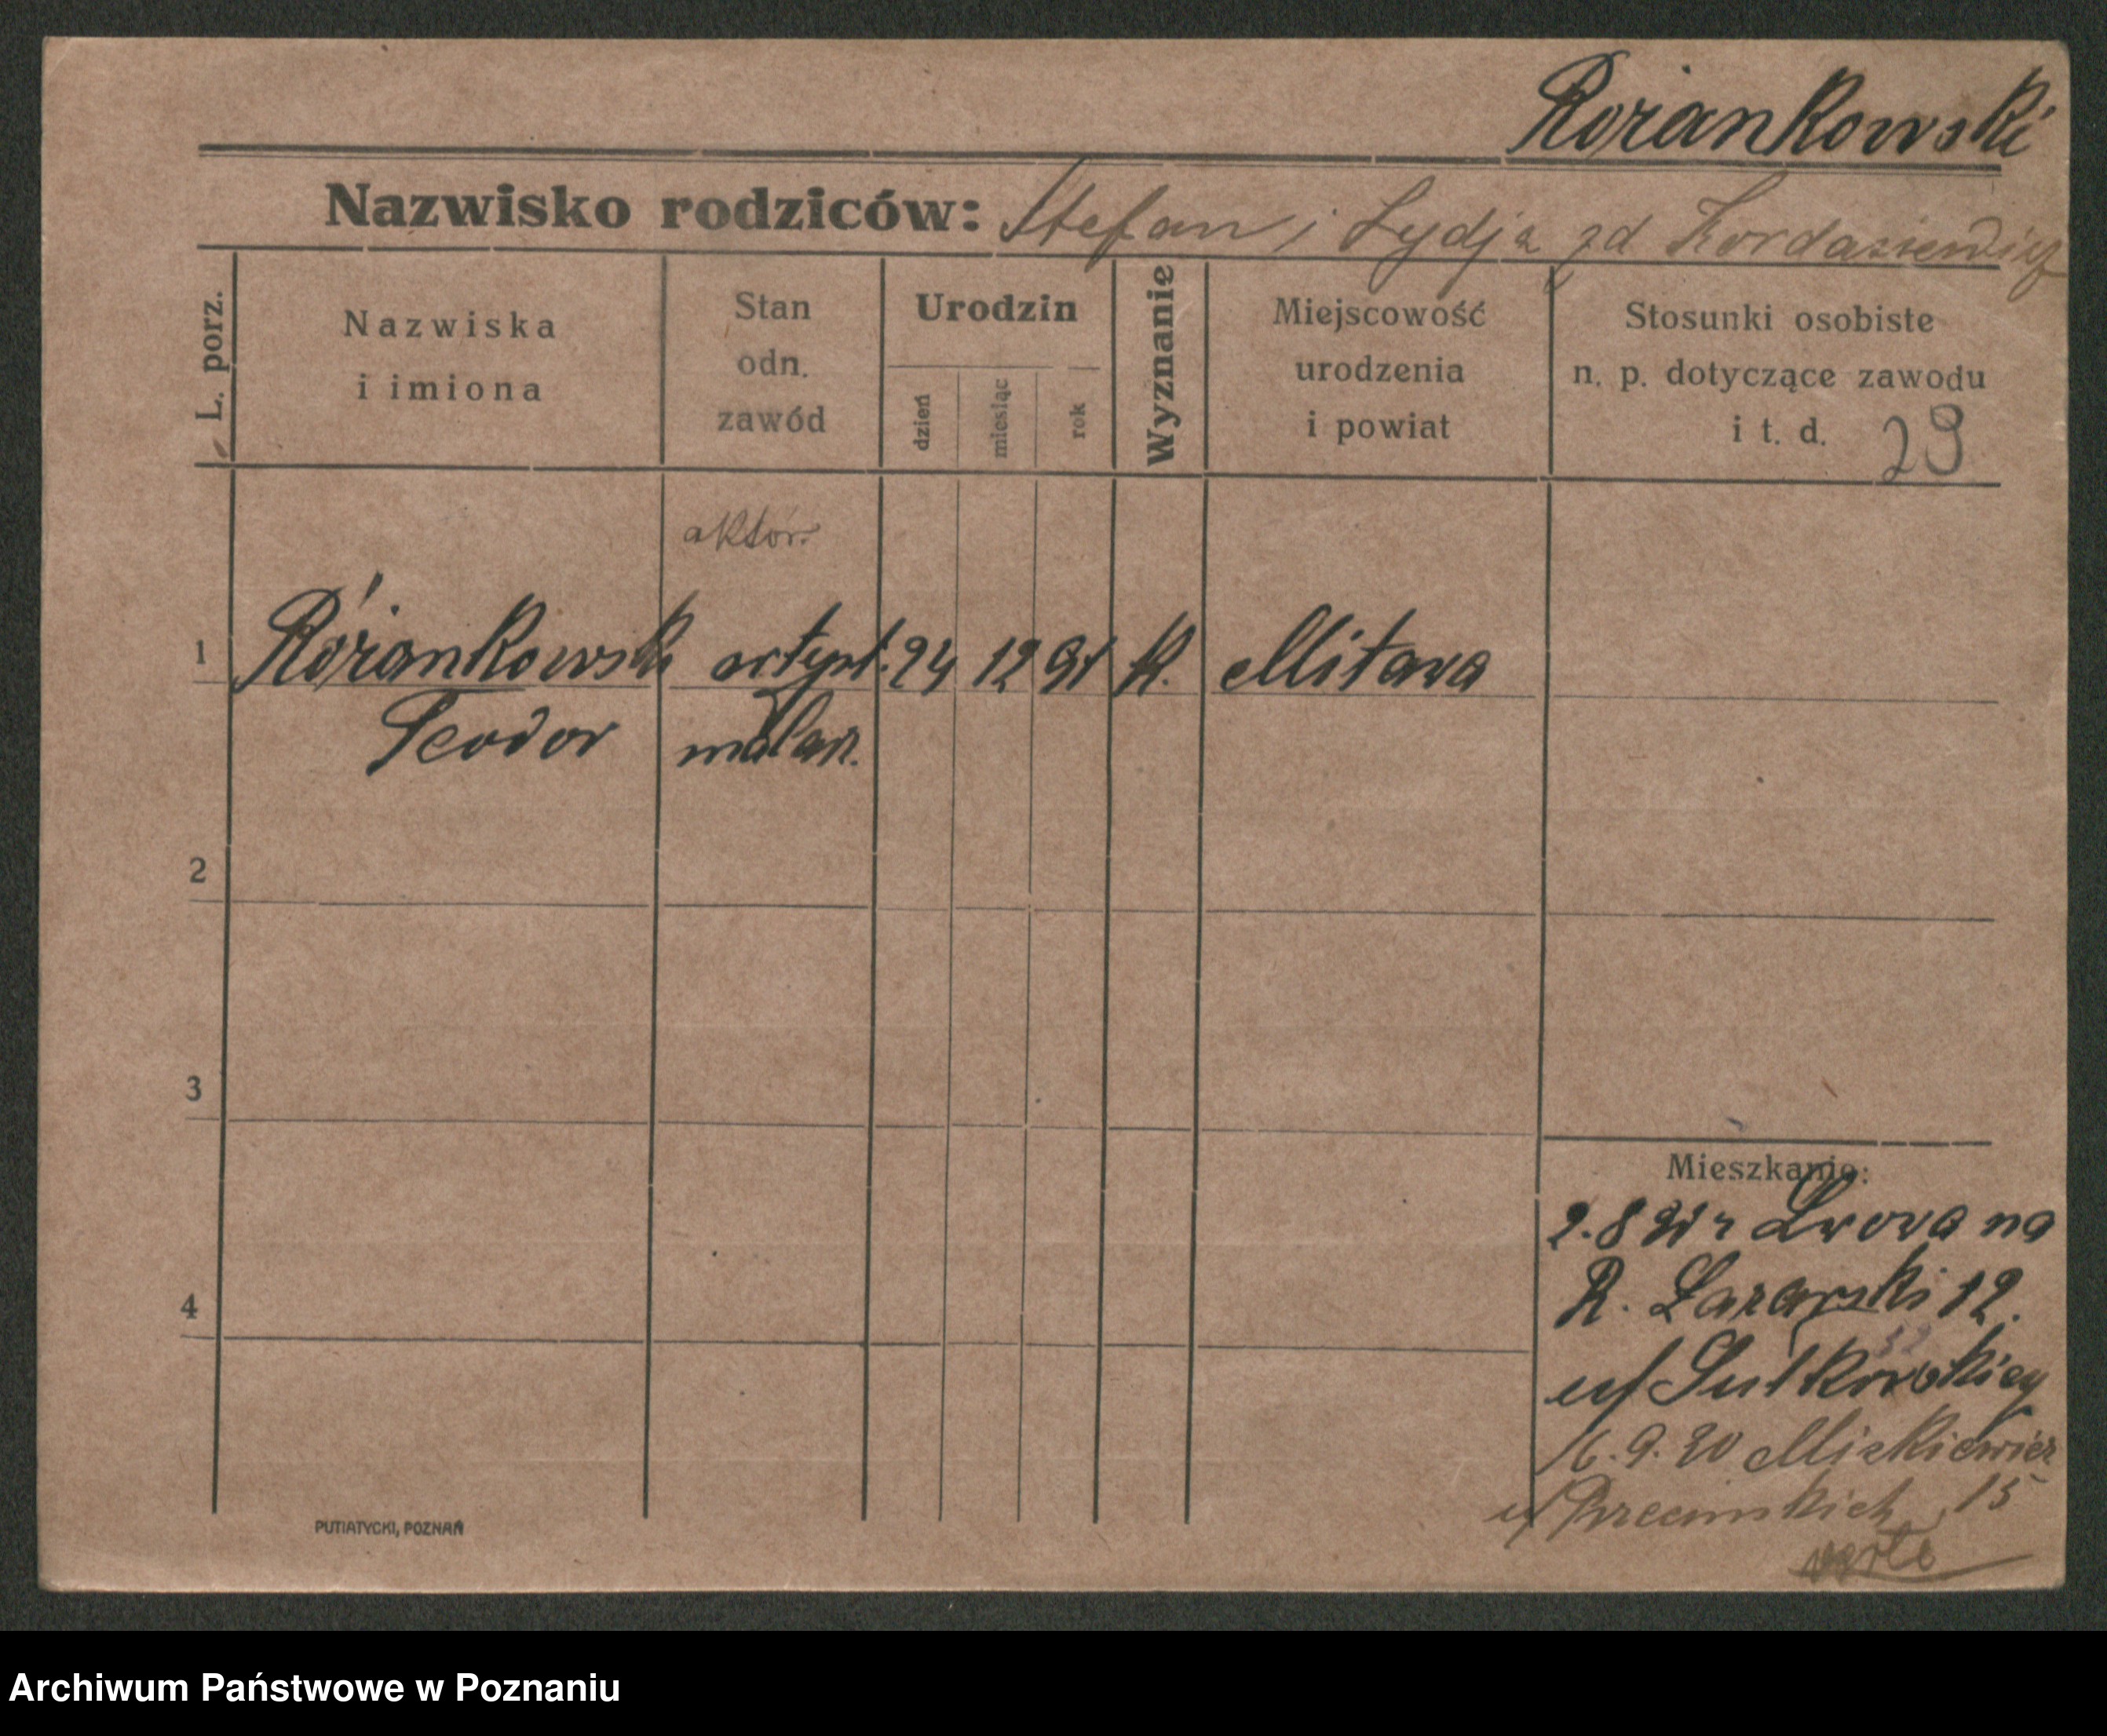 Rożankowski
Nazwisko rodziców: Stefan i Lydja zd Kordasiewicz
L. porz.
Nazwiska
i imiona
Stan
odn.
zawód
Urodzin
dzień
miesiąc
rok
Wyznanie
Miejscowość
urodzenia
i powiat
Stosunki osobiste
n. p. dotyczące zawodu
i t. d. 29
aktor.
1 Różankowski artyst. 24 12 91 K. Mitawa
Teodor malarz.
2
3
4
Mieszkanie:
2.8 z Lwowa na
R. Łazarski 12.
u/ Sutkowskiey
16.9.20 Mickiewicz
u/ 15
verte
PUTIATYCKI, POZNAŃ
Archiwum Państwowe w Poznaniu